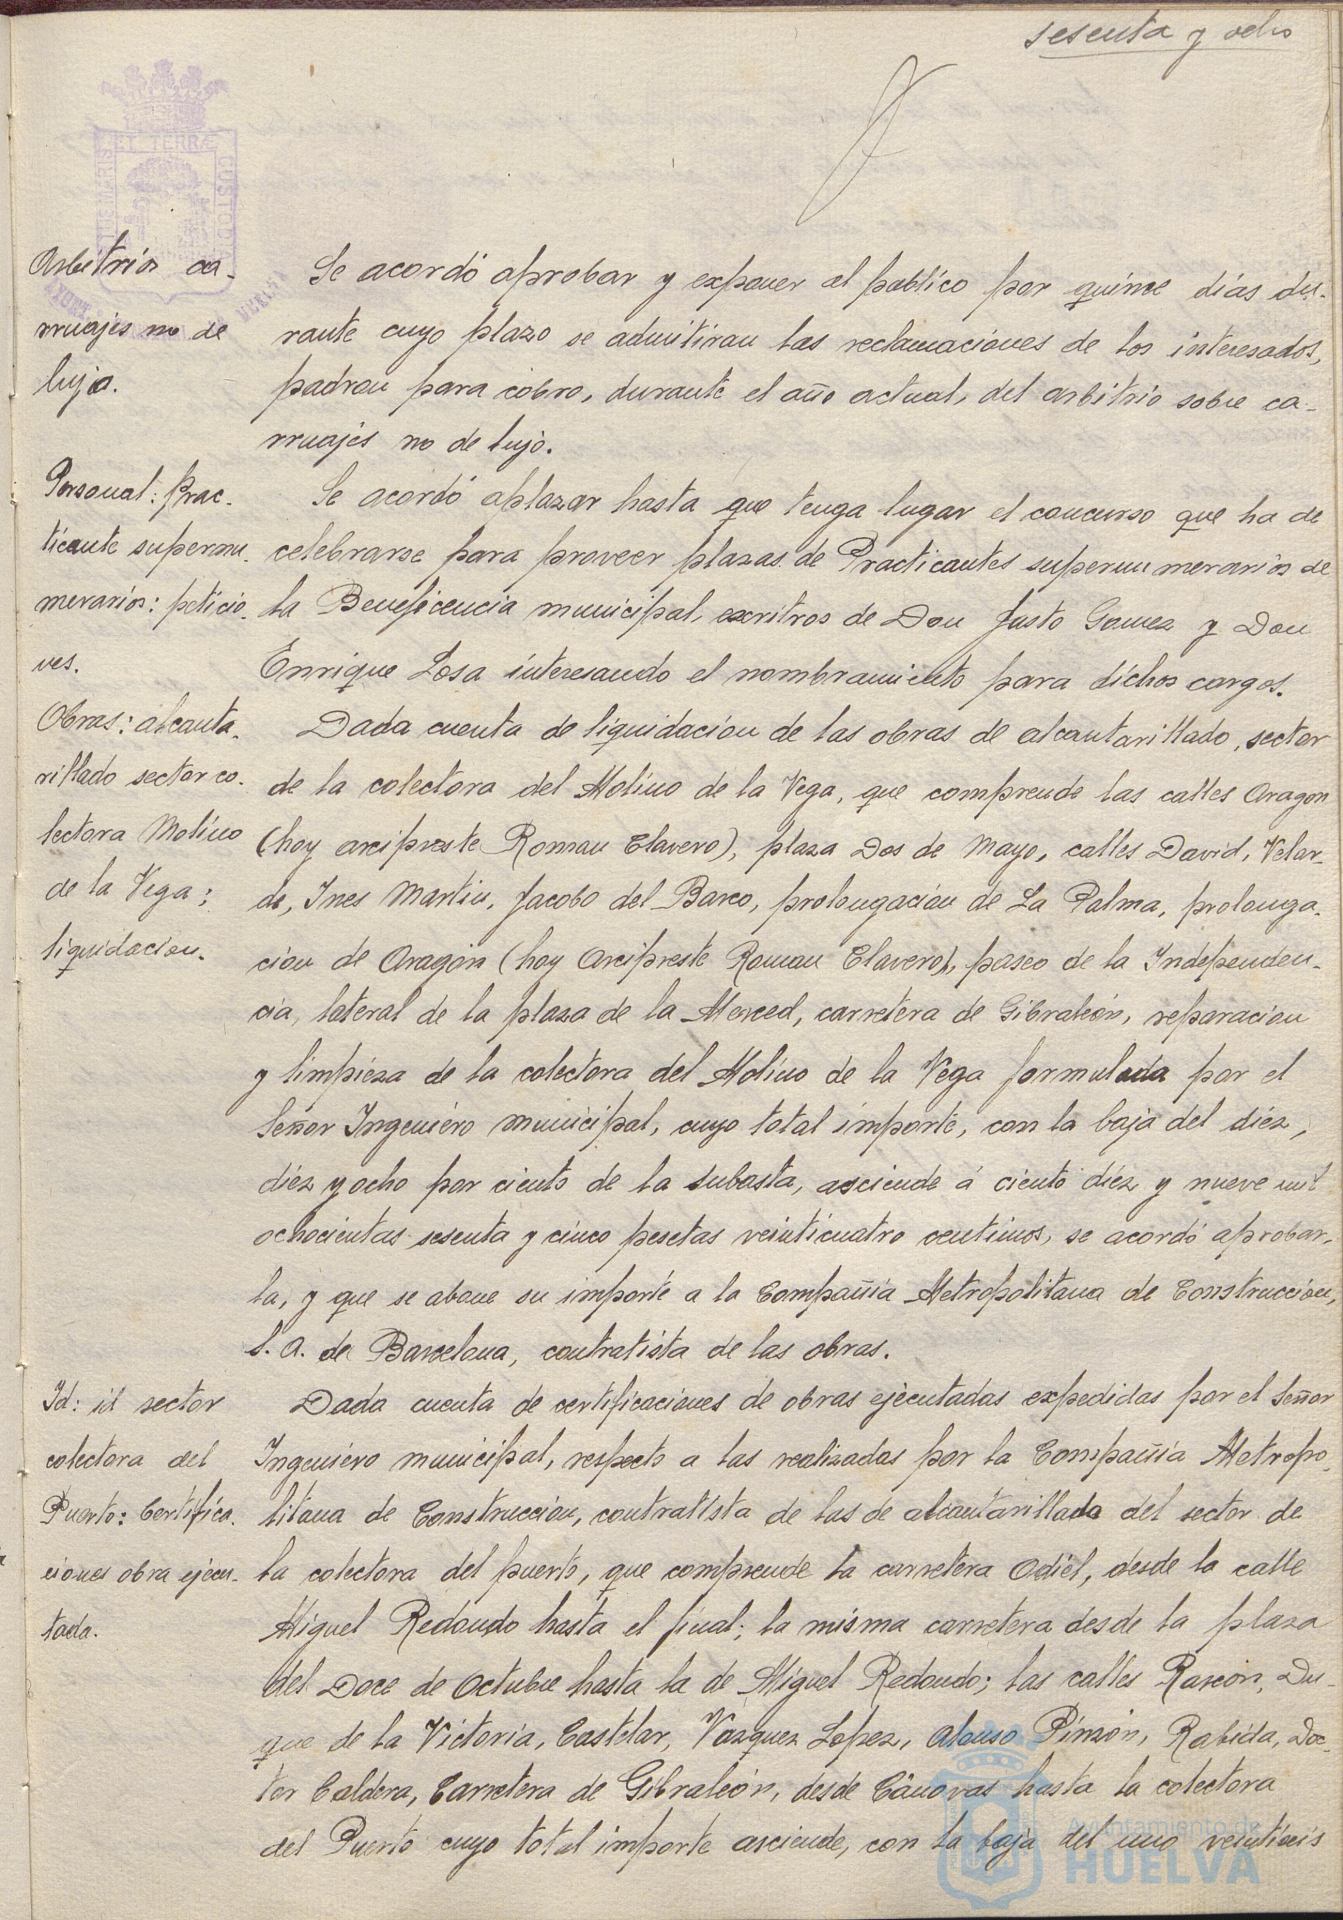 sesenta y ocho
PORTUS MARIS ET TERRÆ CUSTODIA
Arbitrios ca-
rruajes no de
lujo.
Se acordó aprobar y exponer al publico por quince dias du-
rante cuyo plazo se admitiran las reclamaciones de los interesados,
padron para cobro, durante el año actual, del arbitrio sobre ca-
rruajes no de lujo.
Personal: Prac-
ticante supernu-
merarios: peticio-
nes.
Se acordó aplazar hasta que tenga lugar el concurso que ha de
celebrarse para proveer plazas de Practicantes supernumerarios de
la Beneficencia municipal, escritros de Don Justo Gomez y Don
Enrique Losa interesando el nombramiento para dichos cargos.
Obras: alcanta-
rillado sector co-
lectora Molino
de la Vega:
liquidacion.
Dada cuenta de liquidacion de las obras de alcantarillado, sector
de la colectora del Molino de la Vega, que comprende las calles Aragon
(hoy arcipreste Roman Clavero), plaza Dos de Mayo, calles David, Velar-
de, Ines Martin, Jacobo del Barco, prolongacion de La Palma, prolonga-
cion de Aragón (hoy Arcipreste Roman Clavero), paseo de la Independen-
cia, lateral de la plaza de la Merced, carretera de Gibraleón, reparacion
y limpieza de la colectora del Molino de la Vega formulada por el
Señor Ingeniero municipal, cuyo total importe, con la baja del diez,
diez y ocho por ciento de la subasta, asciende á ciento diez y nueve mil
ochocientas sesenta y cinco pesetas veinticuatro centimos, se acordó aprobar-
la, y que se abone su importe a la Compañia Metropolitana de Construccion,
S. A. de Barcelona, contratista de las obras.
Id: id sector
colectora del
Puerto: Certifica-
ciones obra ejecu-
tada.
Dada cuenta de certificaciones de obras ejecutadas expedidas por el Señor
Ingeniero municipal, respecto a las realizadas por la Compañia Metropo-
litana de Construccion, contratista de las de alcantarillado del sector de
la colectora del puerto, que comprende la carretera Odiel, desde la calle
Miguel Redondo hasta el final; la misma carretera desde la plaza
del Doce de Octubre hasta la de Miguel Redondo; las calles Rascón, Du-
que de la Victoria, Castelar, Vazquez Lopez, Alonso Pinzón, Rabida, Doc-
tor Caldera, Carretera de Gibraleón, desde Cánovas hasta la colectora
del Puerto cuyo total importe asciende, con la baja del uno veintiseis
Ayuntamiento de
HUELVA